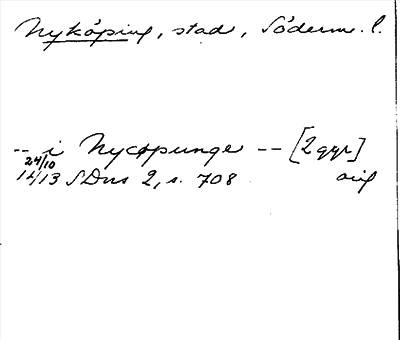 Nyköping, stad, Söderm. l.
-- i Nycopunge -- [2 ggr]
24/10
14/13 SDns 2, s. 708 orig